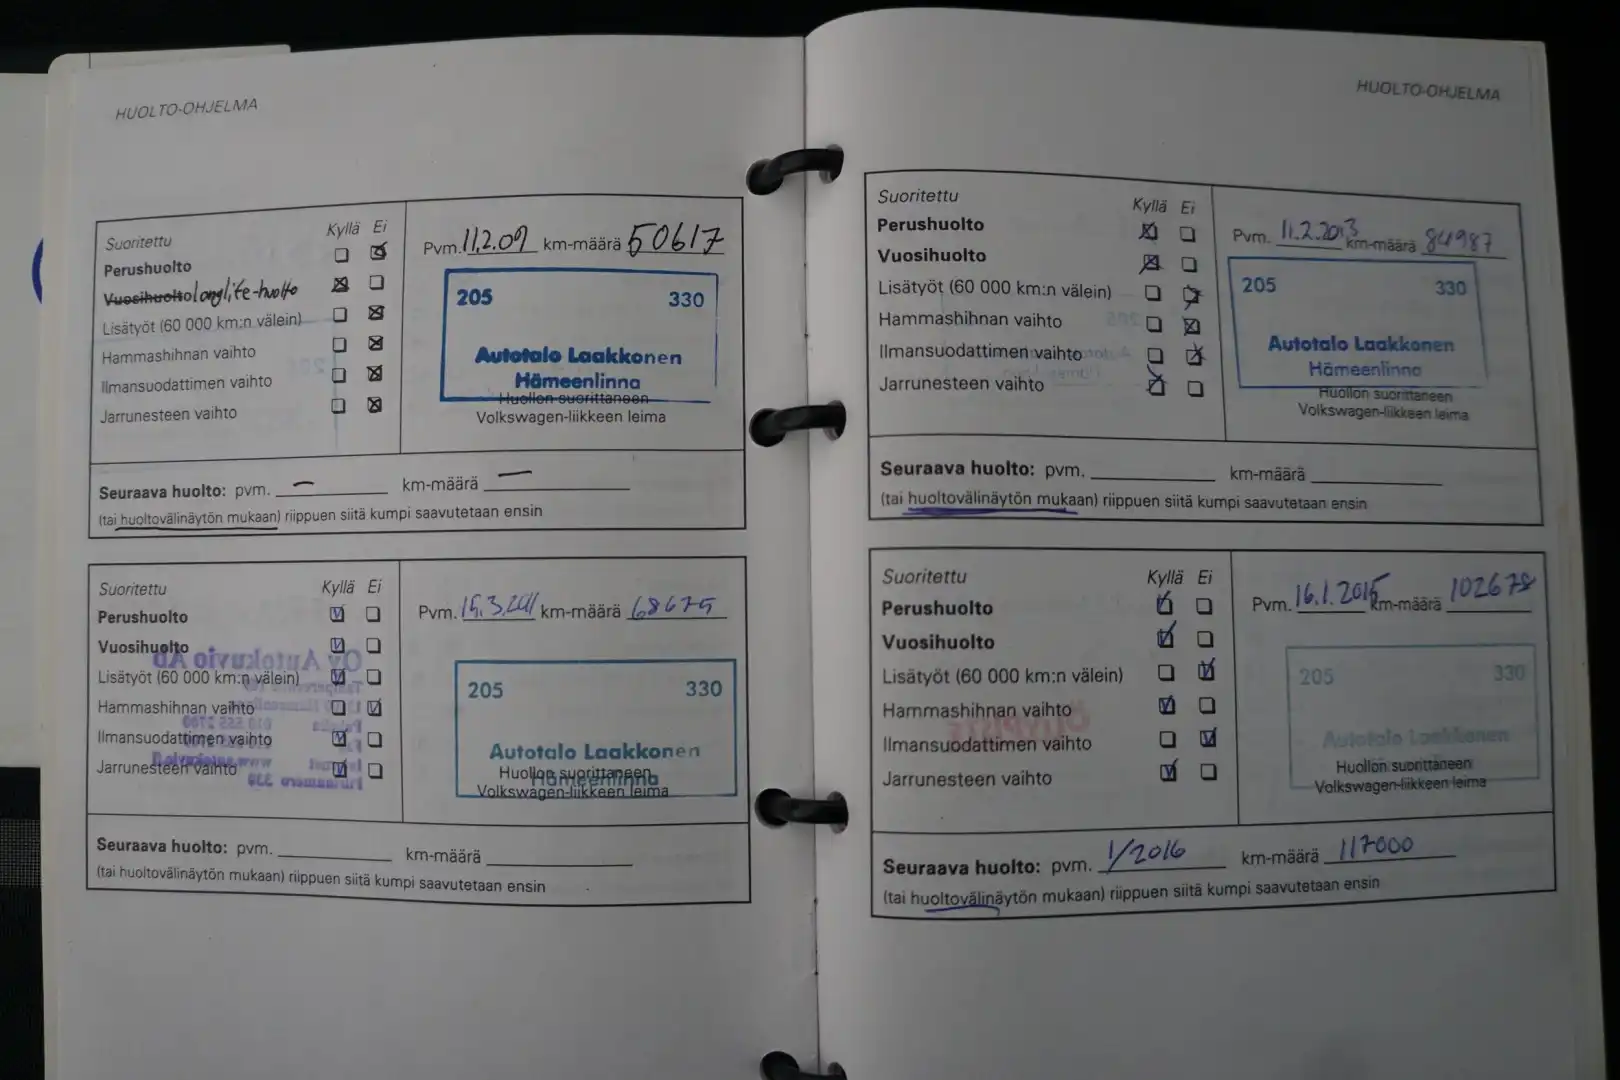 HUOLTO-OHJELMA
Suoritettu Kyllä Ei
Perushuolto
Vuosihuolto longlife-huolto
Lisätyöt (60 000 km:n välein)
Hammashihnan vaihto
Ilmansuodattimen vaihto
Jarrunesteen vaihto
Pvm. 11.2.09 km-määrä 50617
205 330
Autotalo Laakkonen
Hämeenlinna
Huollon suorittaneen
Volkswagen-liikkeen leima
Seuraava huolto: pvm. — km-määrä —
(tai huoltovälinäytön mukaan) riippuen siitä kumpi saavutetaan ensin
Suoritettu Kyllä Ei
Perushuolto
Vuosihuolto
Lisätyöt (60 000 km:n välein)
Hammashihnan vaihto
Ilmansuodattimen vaihto
Jarrunesteen vaihto
Pvm. 15.3.2011 km-määrä 68675
205 330
Autotalo Laakkonen
Hämeenlinna
Huollon suorittaneen
Volkswagen-liikkeen leima
Seuraava huolto: pvm. km-määrä
(tai huoltovälinäytön mukaan) riippuen siitä kumpi saavutetaan ensin
HUOLTO-OHJELMA
Suoritettu Kyllä Ei
Perushuolto
Vuosihuolto
Lisätyöt (60 000 km:n välein)
Hammashihnan vaihto
Ilmansuodattimen vaihto
Jarrunesteen vaihto
Pvm. 11.2.2013 km-määrä 84987
205 330
Autotalo Laakkonen
Hämeenlinna
Huollon suorittaneen
Volkswagen-liikkeen leima
Seuraava huolto: pvm. km-määrä
(tai huoltovälinäytön mukaan) riippuen siitä kumpi saavutetaan ensin
Suoritettu Kyllä Ei
Perushuolto
Vuosihuolto
Lisätyöt (60 000 km:n välein)
Hammashihnan vaihto
Ilmansuodattimen vaihto
Jarrunesteen vaihto
Pvm. 16.1.2015 km-määrä 102678
205 330
Autotalo Laakkonen
Huollon suorittaneen
Volkswagen-liikkeen leima
Seuraava huolto: pvm. 1/2016 km-määrä 117000
(tai huoltovälinäytön mukaan) riippuen siitä kumpi saavutetaan ensin